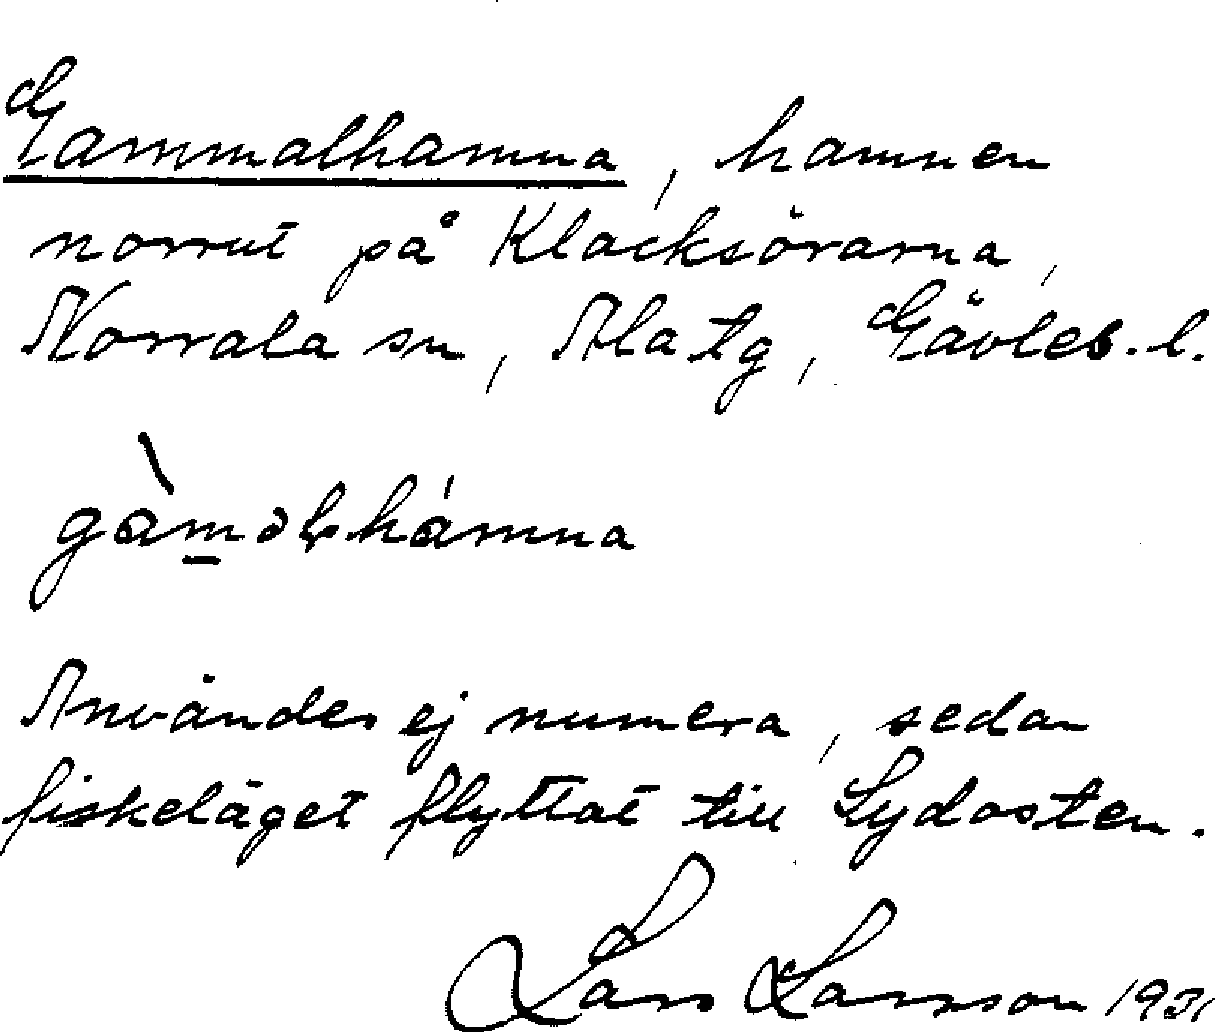 Gammalhamna, hamnen
norrut på Klacksörarna,
Norrala sn, Ala tg, Gävleb. l.
gàməlhámna
Användes ej numera, sedan
fiskeläget flyttat till Sydosten.
Lars Larsson 1931